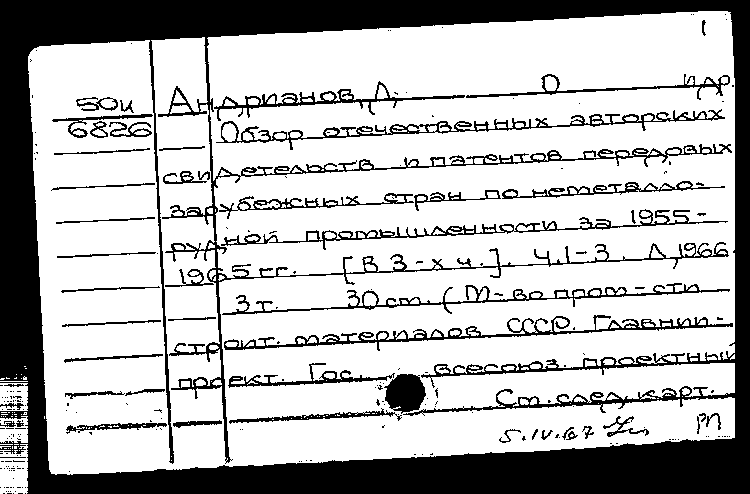 1
50и Андрианов, Л, О и др.
6826 Обзор отечественных авторских
свидетельств и патентов передовых
зарубежных стран по неметалло-
рудной промышленности за 1955-
1965 гг. [В 3-х ч.]. Ч.1-3. Л, 1966.
3т. 30 см. (М-во пром-сти
строит. материалов СССР. Главнии-
проект. Гос. всесоюз. проектный
См. след. карт.
5.IV.67 РП